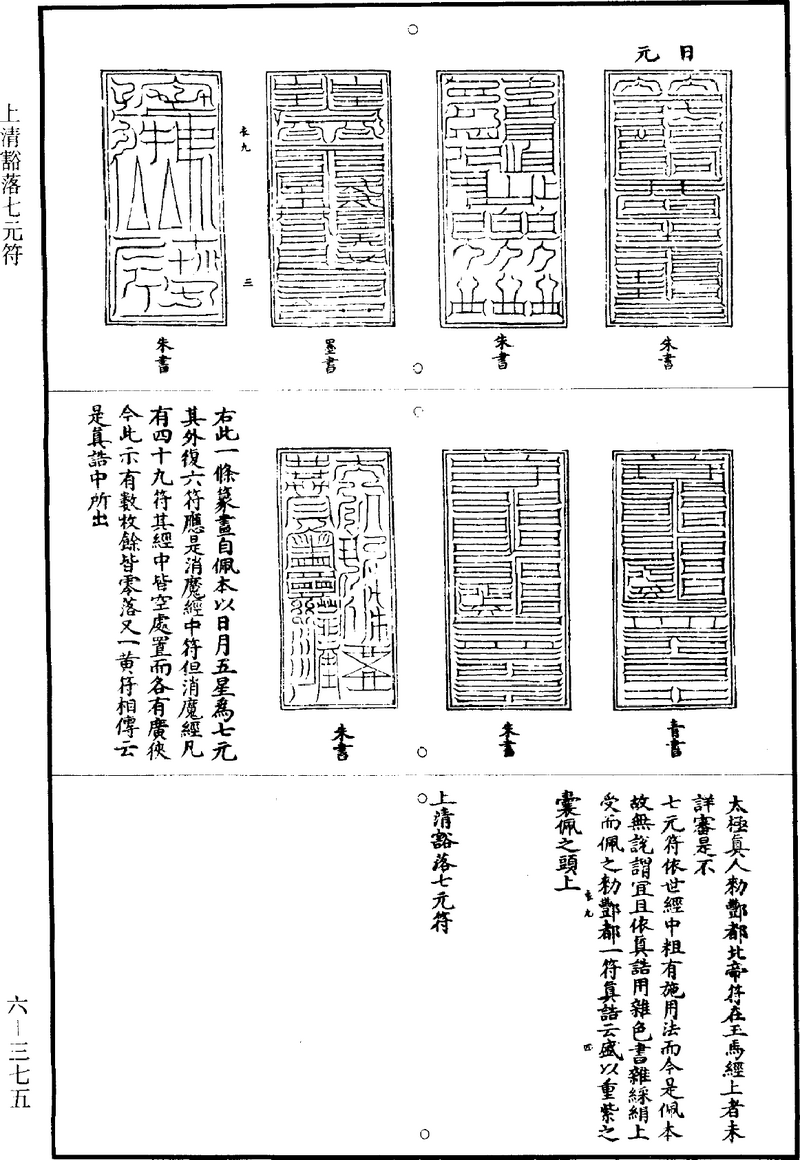 日元
朱書
朱書
墨書
朱書
三
青書
朱書
朱書
右此一條篆畫自佩本以日月五星爲七元
其外復六符應是消魔經中符但消魔經凡
有四十九符其經中皆空處置而各有廣狹
今此示有數枚餘皆零落又一黃符相傳云
是真誥中所出
太極真人勑酆都北帝符在王馬經上者未
詳審是不
七元符依世經中粗有施用法而今是佩本
故無説謂宜且依真誥用雜色書雜綵絹上
受而佩之勑酆都一符真誥云盛以重紫之
四
囊佩之頭上
上清豁落七元符
上清豁落七元符
六－三七五